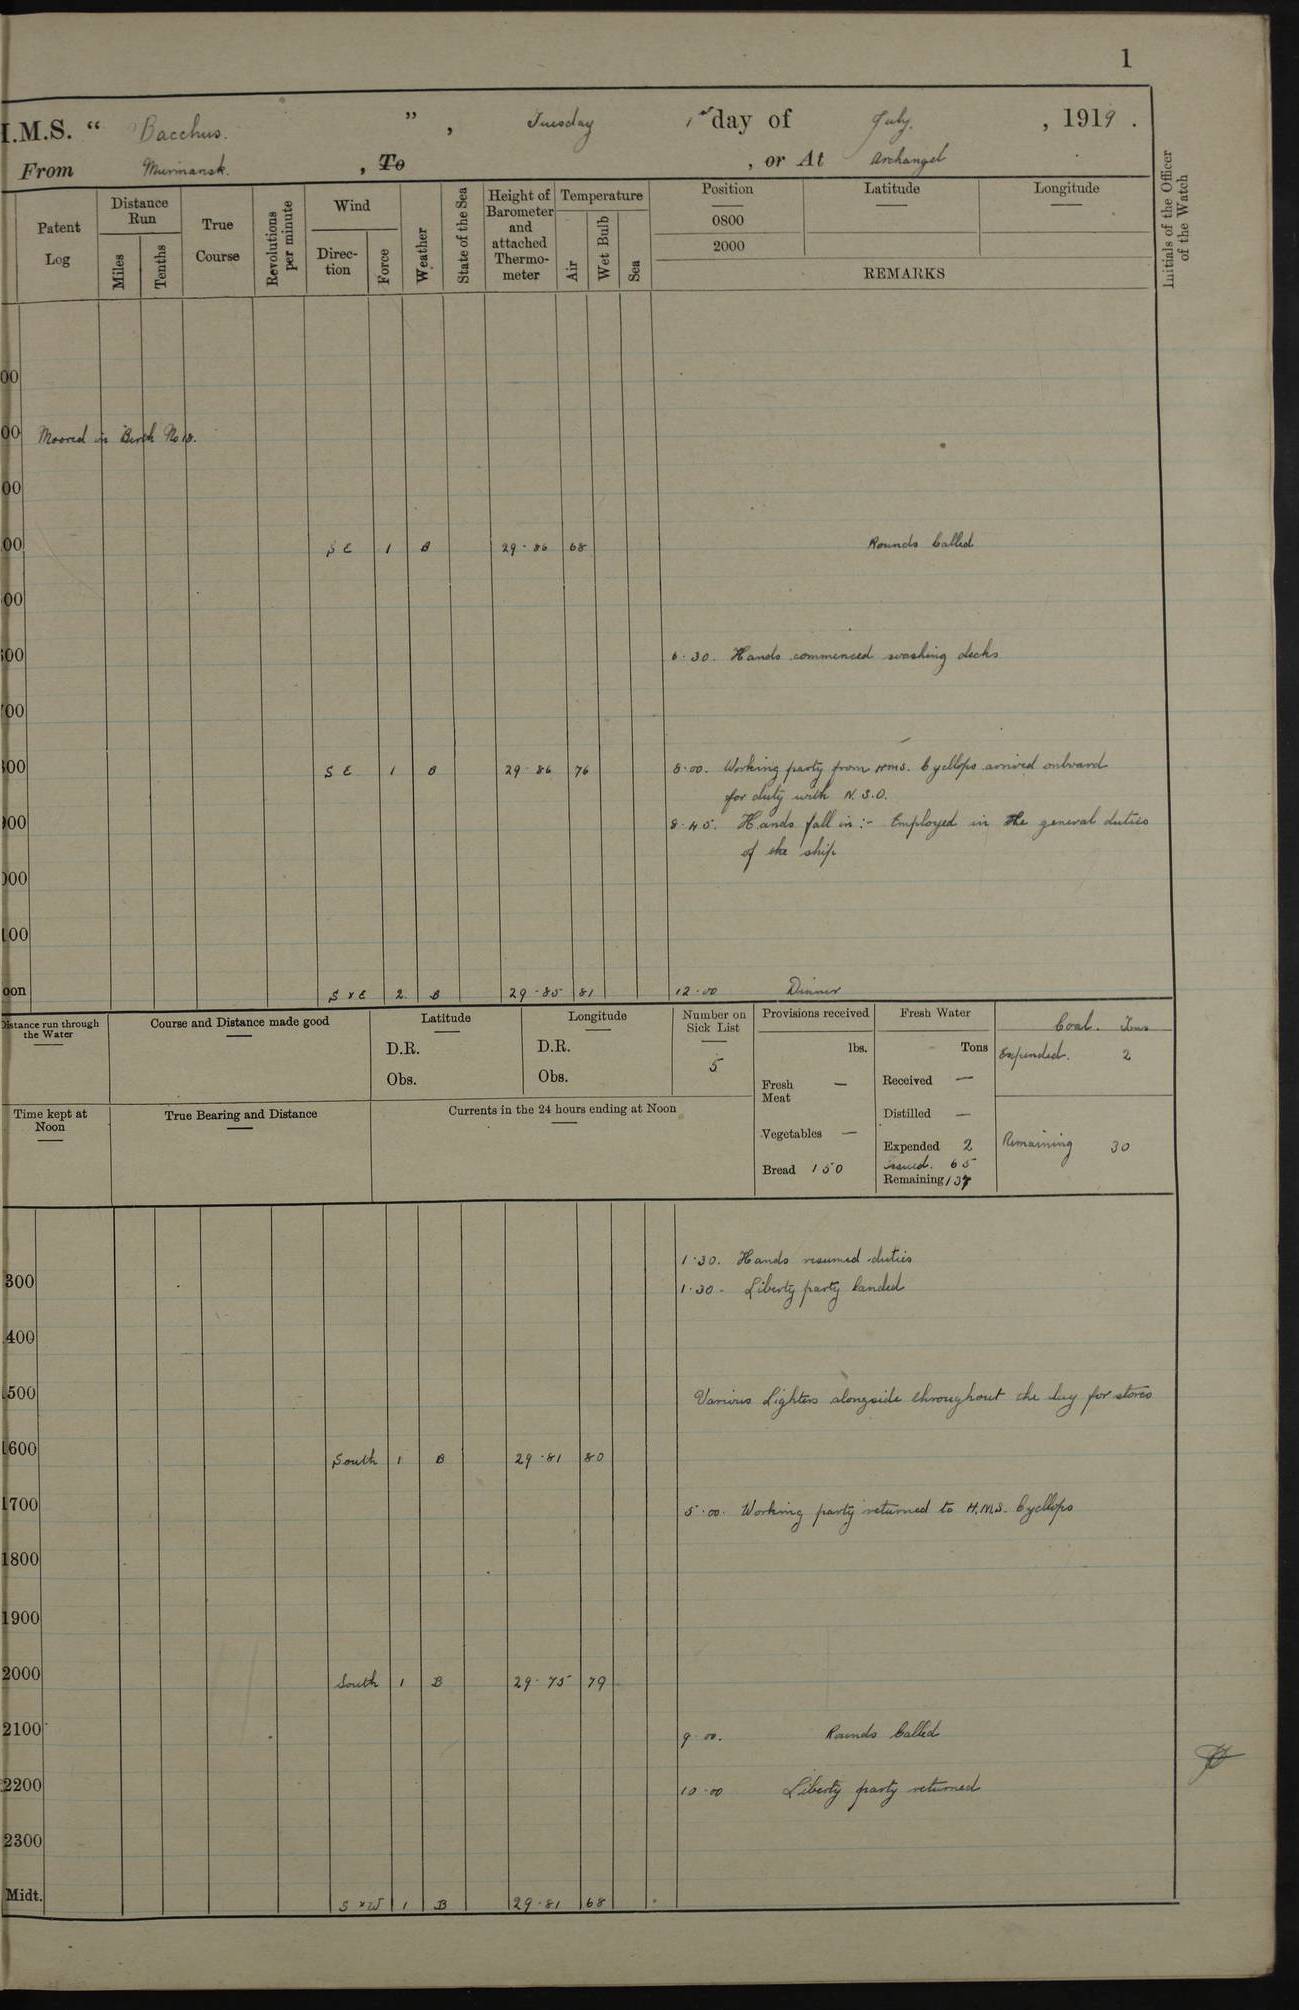 1
I.M.S. “ Bacchus. ” , Tuesday 1st day of July. , 1919 .
From Murmansk. , To , or At Archangel
Patent Log
Distance Run
Miles
Tenths
True Course
Revolutions per minute
Wind
Direc-tion
Force
Weather
State of the Sea
Height of Barometer and attached Thermo-meter
Temperature
Air
Wet Bulb
Sea
Position
0800
2000
Latitude
Longitude
REMARKS
Initials of the Officer of the Watch
00
00 Moored in Berth No 18.
00
00 S E 1 B 29·86 68 Rounds Called
00
600 6·30. Hands commenced washing decks
700
800 S E 1 B 29·86 76 8·00. Working party from H.M.S. Cycllops arrived onboard
for duty with N.S.O.
900 8·45. Hands fall in :- Employed in the general duties
of the ship
000
100
oon S x E 2 B 29·85 81 12·00 Dinner
Distance run through the Water
Course and Distance made good
Latitude
D.R.
Obs.
Longitude
D.R.
Obs.
Number on Sick List
5
Provisions received
lbs.
Fresh Meat —
Vegetables —
Bread 150
Fresh Water
Tons
Received —
Distilled —
Expended 2
Issued. 65
Remaining 137
Coal. Tons
Expended. 2
Remaining 30
Time kept at Noon
True Bearing and Distance
Currents in the 24 hours ending at Noon
1·30. Hands resumed duties
300 1·30 - Liberty party landed
400
500 Various Lighters alongside throughout the day for stores
1600 South 1 B 29·81 80
1700 5·00. Working party returned to H.M.S. Cycllops
1800
1900
2000 South 1 B 29·75 79
2100 9·00. Rounds Called
2200 10·00 Liberty party returned
2300
Midt. S x W 1 B 29·81 68